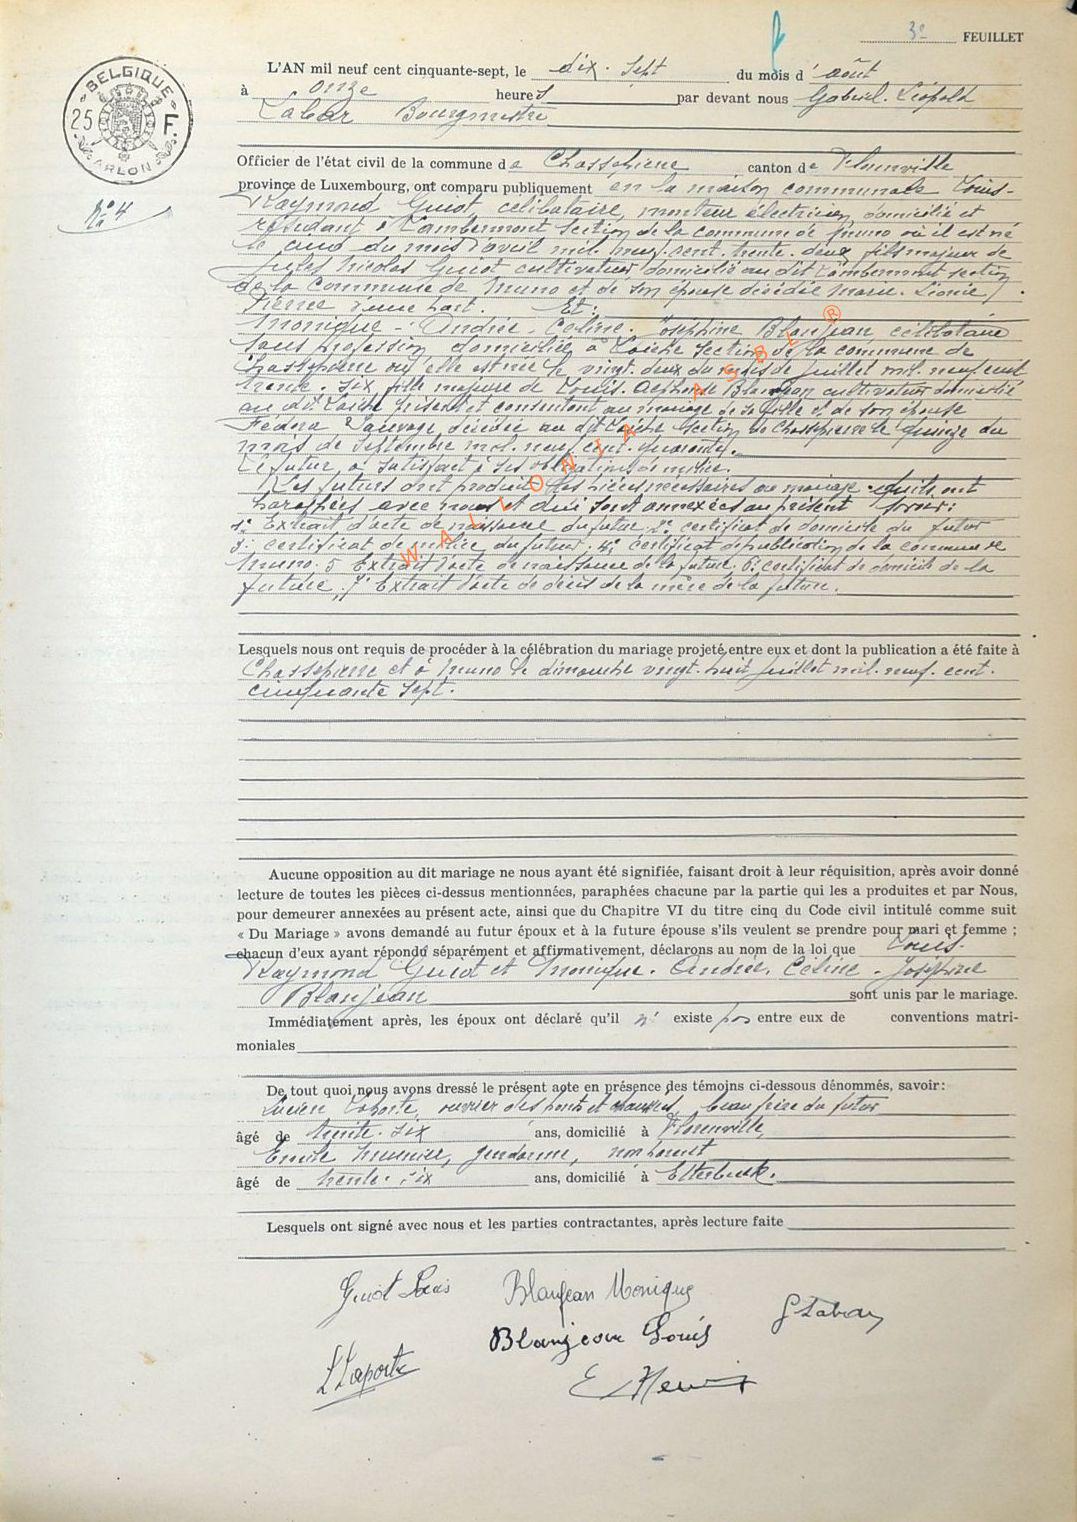 3e FEUILLET
BELGIQUE
25 F.
ARLON
No 4
L'AN mil neuf cent cinquante-sept, le dix-sept du mois d'août
à onze heures par devant nous Gabriel-Léopold
Labar Bourgmestre
Officier de l'état civil de la commune de Chassepierre canton de Florenville
province de Luxembourg, ont comparu publiquement en la maison communale Louis-
Raymond Guiot, célibataire, monteur électricien, domicilié et
résidant à Lambermont section de la commune de Muno où il est né
le cinq du mois d'avril mil neuf cent trente-deux, fils majeur de
Jules Nicolas Guiot cultivateur domicilié au dit Lambermont section
de la commune de Muno et de son épouse décédée Marie-Léonie
Pierre Et:
Monique-Andrée-Céline-Joséphine Blanjean, célibataire
sans profession domiciliée à Laiche section de la commune de
Chassepierre où elle est née le vingt-deux du mois de juillet mil neuf cent
trente-six, fille majeure de Louis-Alphonse Blanjean cultivateur domicilié
au dit Laiche présent et consentant au mariage de sa fille et de son épouse
Fédora Sauvage, décédée au dit Laiche section de Chassepierre le quinze du
mois de septembre mil neuf cent quarante.
Le futur, a satisfait à ses obligations de milice.
Les futurs ont produit les pièces nécessaires au mariage qu'ils ont
paraphées avec nous et qui sont annexées au présent savoir:
1° Extrait d'acte de naissance du futur 2° certificat de domicile du futur
3° certificat de milice du futur 4° certificat de publication de la commune de
Muno 5 Extrait d'acte de naissance de la future 6° certificat de domicile de la
future, 7° Extrait d'acte de décès de la mère de la future.
WALLONIA ASBL ®
Lesquels nous ont requis de procéder à la célébration du mariage projeté entre eux et dont la publication a été faite à
Chassepierre et à Muno le dimanche vingt-huit juillet mil neuf cent
cinquante sept.
Aucune opposition au dit mariage ne nous ayant été signifiée, faisant droit à leur réquisition, après avoir donné
lecture de toutes les pièces ci-dessus mentionnées, paraphées chacune par la partie qui les a produites et par Nous,
pour demeurer annexées au présent acte, ainsi que du Chapitre VI du titre cinq du Code civil intitulé comme suit
« Du Mariage » avons demandé au futur époux et à la future épouse s'ils veulent se prendre pour mari et femme ;
chacun d'eux ayant répondu séparément et affirmativement, déclarons au nom de la loi que Louis-
Raymond Guiot et Monique-Andrée-Céline-Joséphine
Blanjean sont unis par le mariage.
Immédiatement après, les époux ont déclaré qu'il n'existe pas entre eux de conventions matri-
moniales
De tout quoi nous avons dressé le présent acte en présence des témoins ci-dessous dénommés, savoir:
Lucien Laporte, ouvrier des ponts et chaussées, beau frère du futur
âgé de trente-six ans, domicilié à Florenville,
Emile gendarme, non parent
âgé de trente-six ans, domicilié à Etterbeek.
Lesquels ont signé avec nous et les parties contractantes, après lecture faite
Guiot Louis Blanjean Monique G Labar
Blanjean Louis
L Laporte E